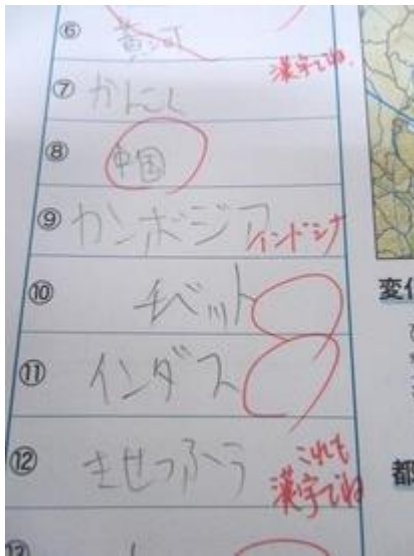 ⑥ 黄河
漢字でね。
⑦ かんこく
⑧ 中国
⑨ カンボジア インドシナ
⑩ チベット
⑪ インダス
⑫ きせつふう
これも
漢字でね
⑬
変化
都